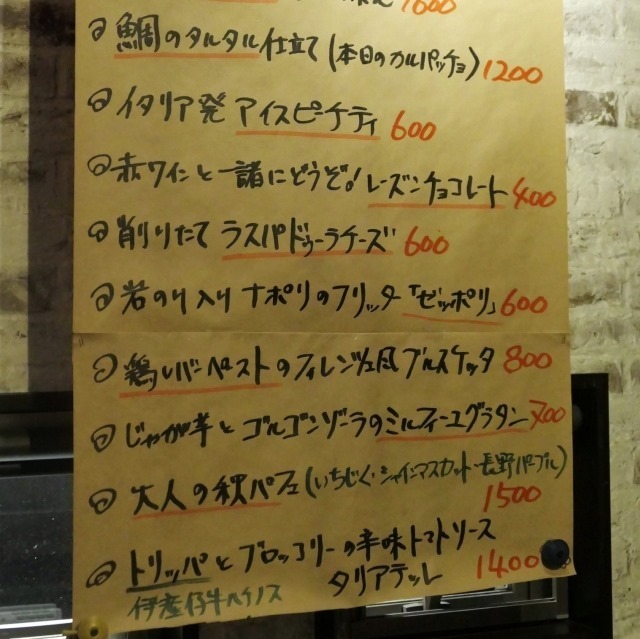 1600
鯛のタルタル仕立て(本日のカルパッチョ) 1200
イタリア発 アイスピーチティ 600
赤ワインと一諸にどうぞ! レーズンチョコレート 400
削りたて ラスパドゥーラチーズ 600
岩のり入り ナポリのフリッター「ゼッポリ」 600
鶏レバーペーストのフィレンツェ風ブルスケッタ 800
じゃが芋とゴルゴンゾーラのミルフィーユグラタン 700
大人の秋パフェ(いちじく・シャインマスカット・長野パープル)
1500
トリッパとブロッコリーの辛味トマトソース
タリアテッレ 1400
伊産仔牛ハチノス